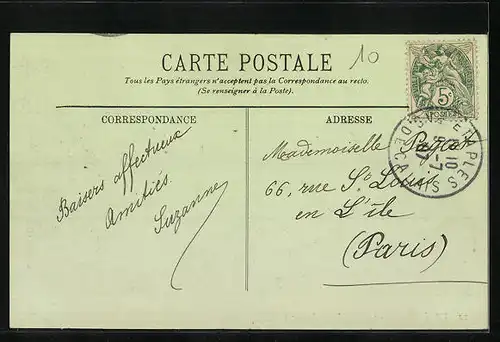 10
CARTE POSTALE
Tous les Pays étrangers n'acceptent pas la Correspondance au recto.
(Se renseigner à la Poste).
CORRESPONDANCE
ADRESSE
5c
POSTES
Baisers affectueux
Amitiés
Suzanne
Mademoiselle
66, rue St Louis
en L'ile
(Paris)